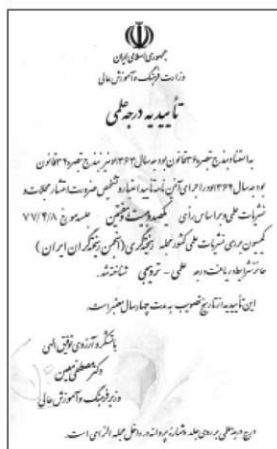 جمهوری اسلامی ایران
وزارت فرهنگ و آموزش عالی
تأییدیه درجه علمی
به استناد مندرج تبصره ۳۶ قانون بودجه سال ۱۳۶۳ و نیز مندرج تبصره ۳۶ قانون
بودجه سال ۱۳۶۴ و در اجرای آئین نامه تأیید اعتبار و تشخیص ضرورت انتشار مجلات و
نشریات علمی و بر اساس رأی یکصد و بیست و هفتمین جلسه مورخ ۷۷/۴/۸
کمیسیون بررسی نشریات علمی کشور مجله ریخته‌گری (انجمن ریخته‌گران ایران)
حائز شرایط دریافت درجه علمی - ترویجی شناخته شد.
این تأییدیه از تاریخ تصویب به مدت چهار سال معتبر است.
با تشکر و آرزوی توفیق الهی
دکتر مصطفی معین
وزیر فرهنگ و آموزش عالی
درج درجه علمی بر روی جلد و شماره پروانه در داخل مجله الزامی است.